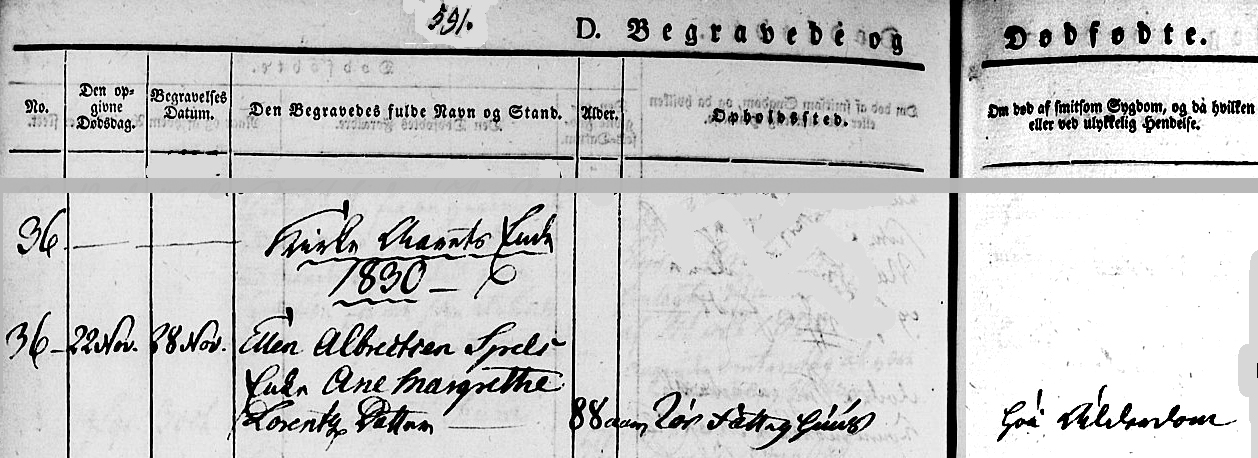 591.
D. Begravede og Dødfødte.
No.
Den op-
givne
Dødsdag.
Begravelses
Datum.
Den Begravedes fulde Navn og Stand.
Alder.
Opholdssted.
Om død af smitsom Sygdom, og da hvilken
eller ved ulykkelig Hendelse.
36.
Kirke Aarets Ende
1830 –
36 – 22 Nov. 28 Nov. Ellen Albretsen
Enke Ane Margrethe
Lorentz Datter 88 aar Fattig Huus høi Alderdom